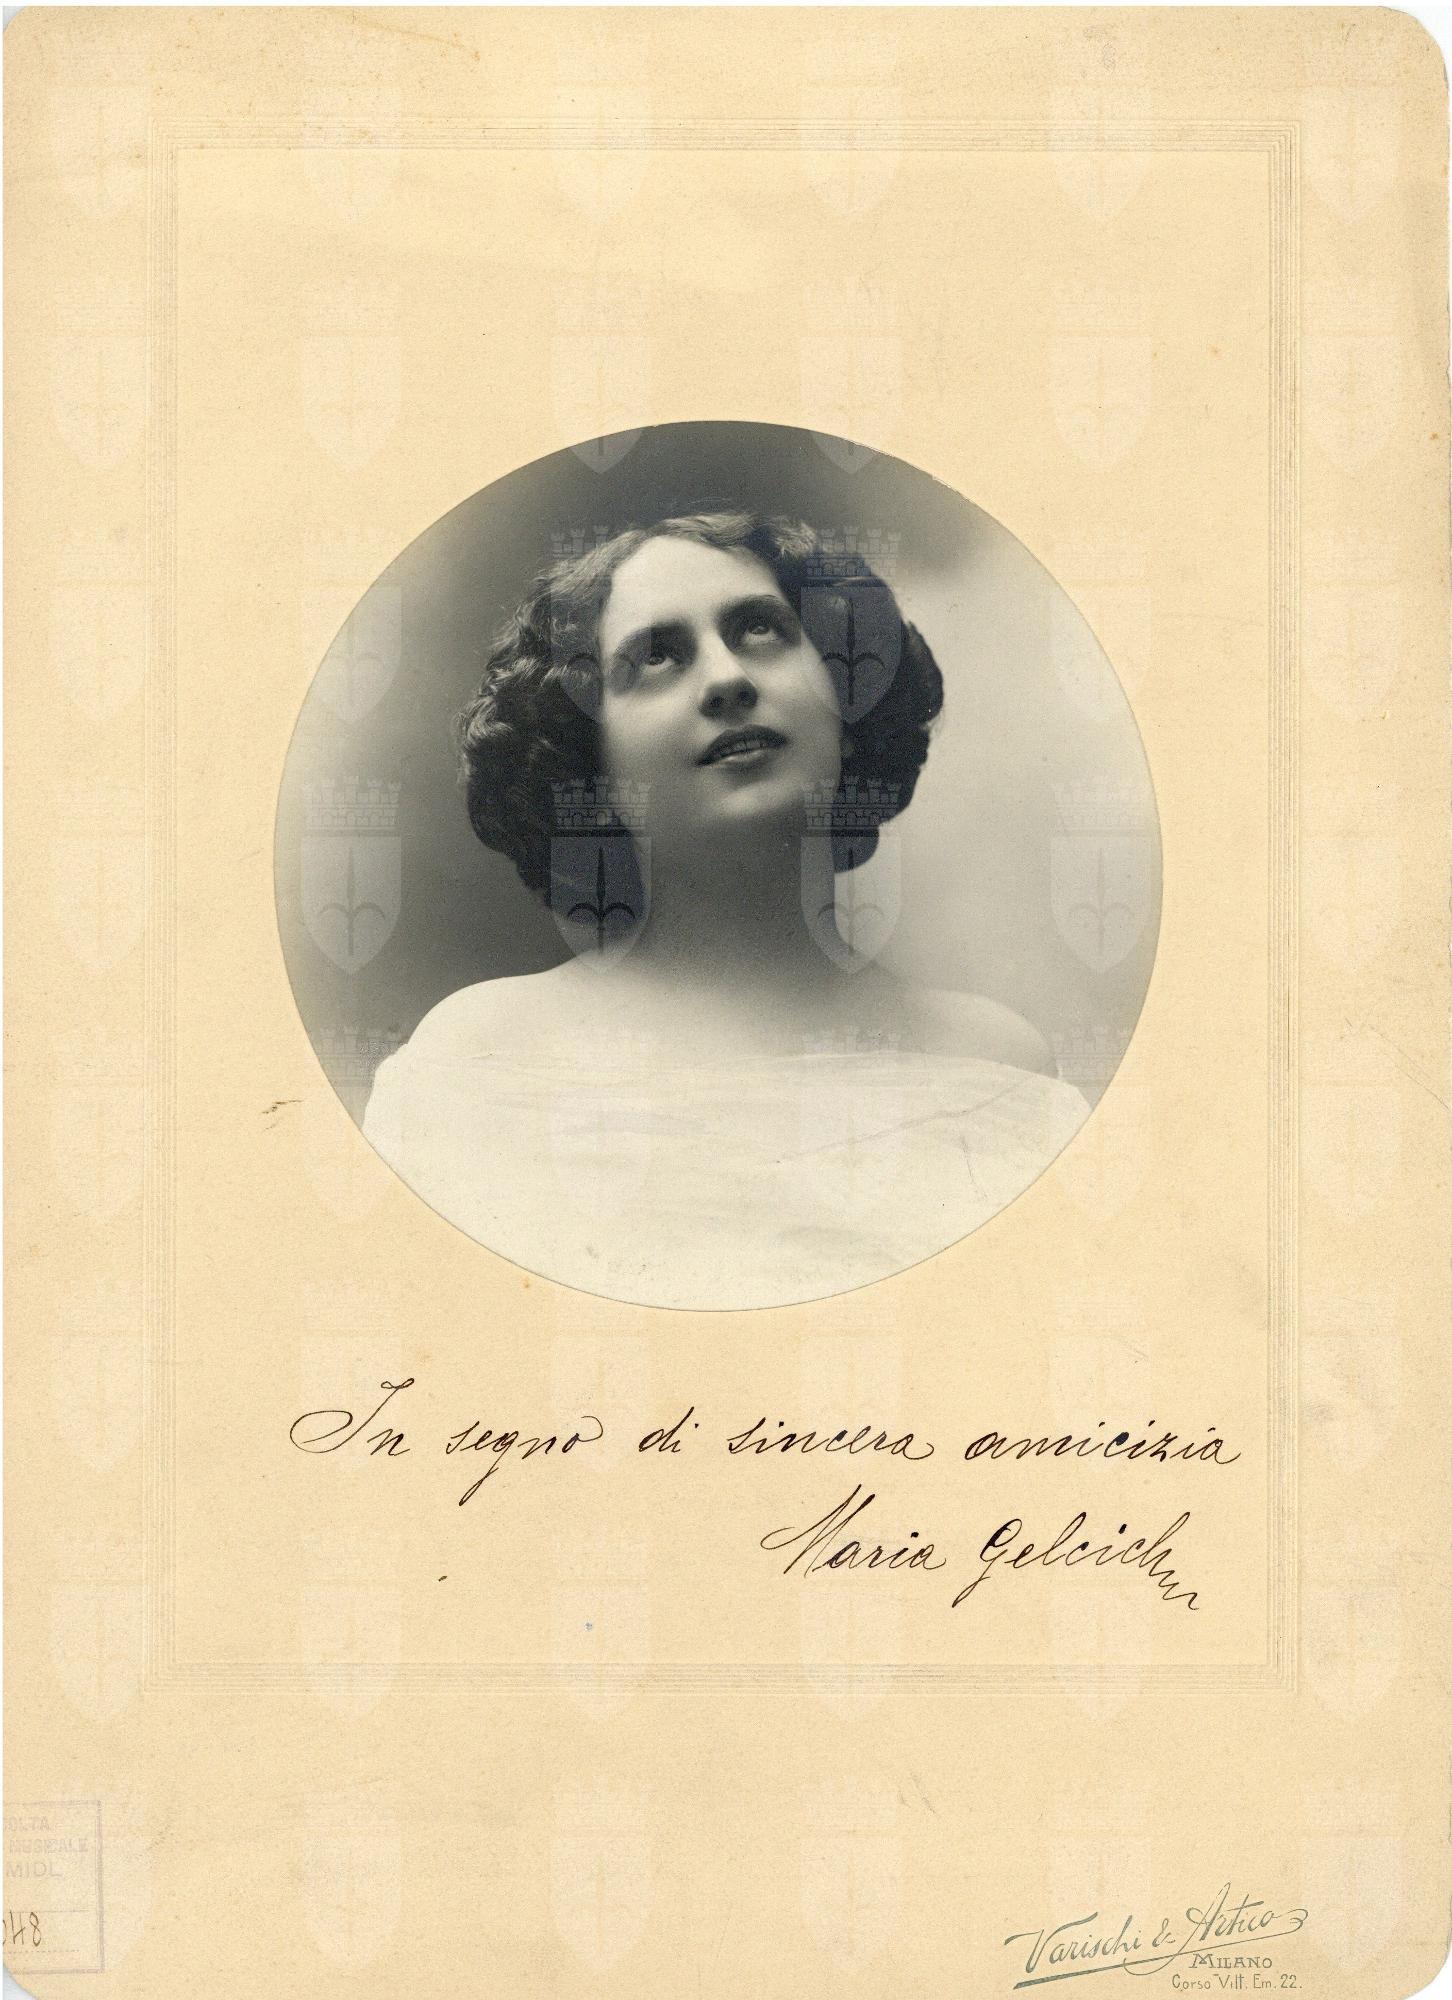 In segno di sincera amicizia
Maria Gelcich
OLTA
MUSICALE
MIDL
048
Varischi & Artico
MILANO
Corso Vitt. Em. 22.